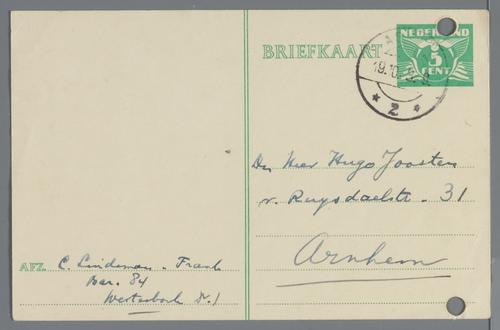 BRIEFKAART
NEDERLAND
5
CENT
19.10
2
Den Heer Hugo Joosten
v. Ruysdaelstr. 31
Arnhem
AFZ. C. Lindeman - Frank
Bar. 84
Westerbork Dr.